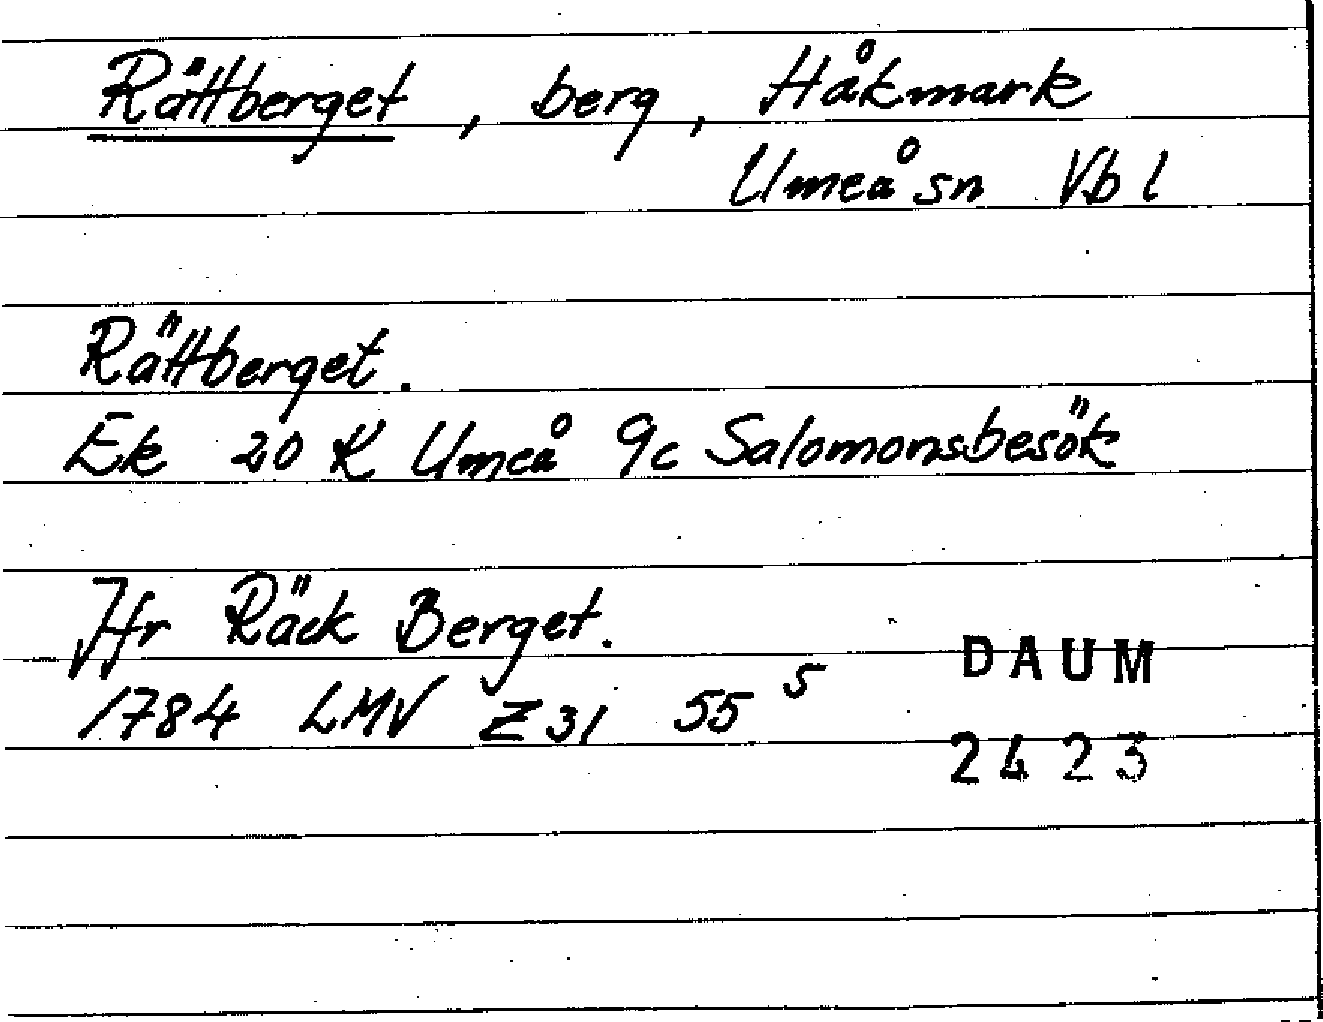 Rättberget, berg, Håkmark
Umeå sn Vb l
Rättberget.
Ek 20 K Umeå 9c Salomonsbesök
Jfr Räck Berget.
1784 LMV Z 31 55 s
DAUM
2423